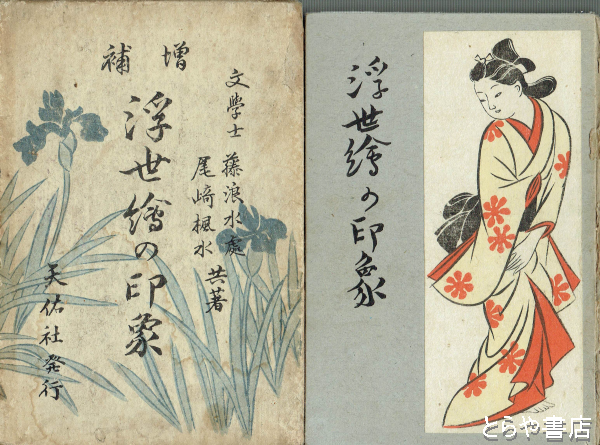 補增
文學士 藤浪水處
尾崎楓水 共著
浮世繪の印象
天佑社発行
浮世繪の印象
とらや書店